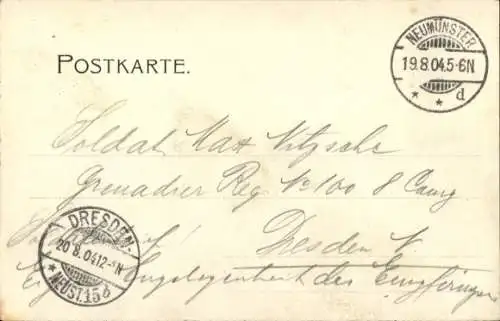 POSTKARTE.
NEUMÜNSTER
19.8.04.5-6N
* * d
Soldat Max Nitzsche
Grenadier Reg No 100 8 Comp
Dresden N.
Angelegenheit des Empfängers
DRESDEN
20.8.04.12-N
* NEUST. 15 d